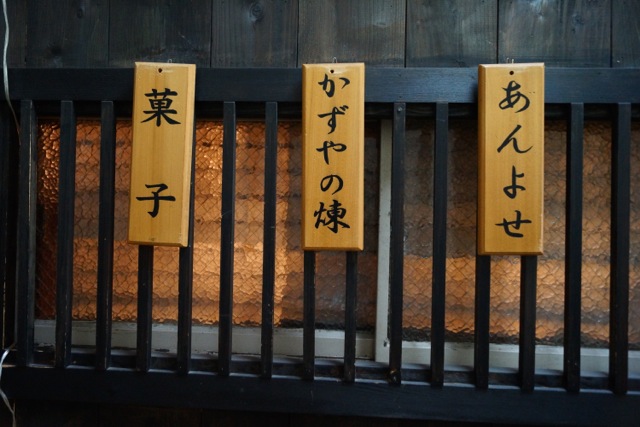 あんよせ
かずやの煉
菓子